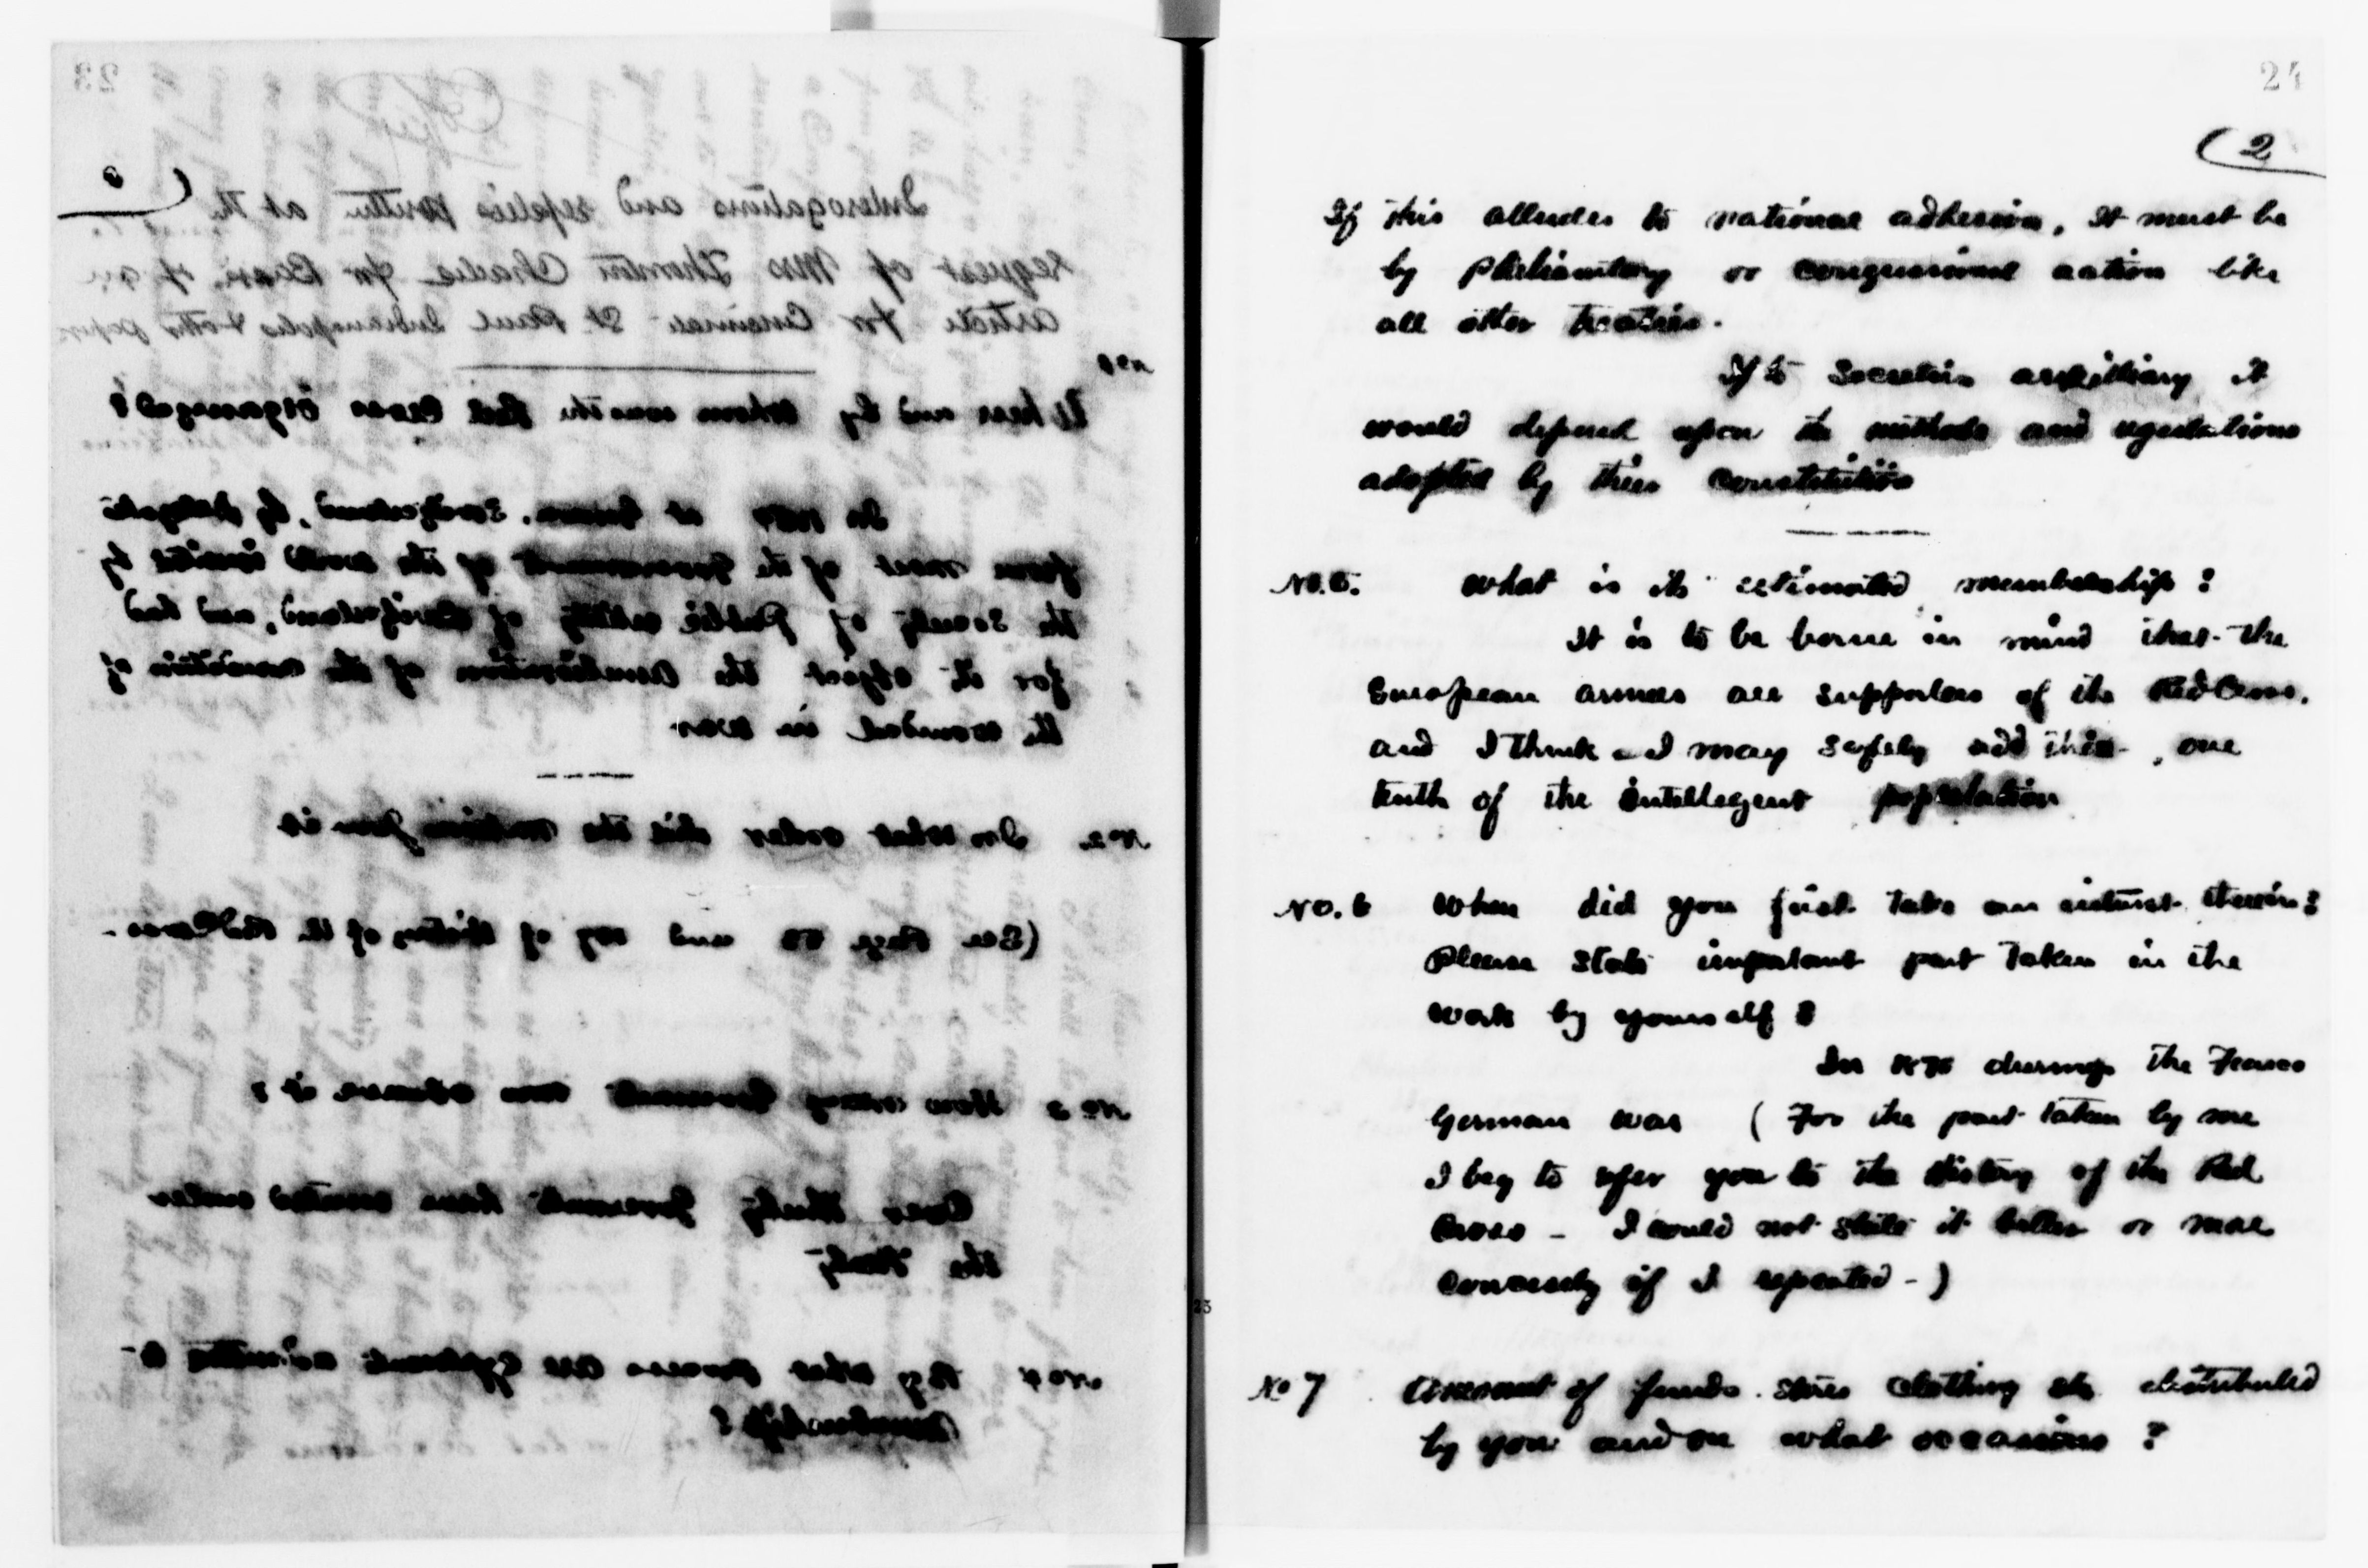 23
Interogations and replies written at the
request of Mrs Thornton Charles for Basis of an
article for Cincinnati St. Paul Indianapolis & other papers
No 1
When and by whom was the Red Cross organized?
In at Geneva, Switzerland, by delegates
from most of the Governments of the world invited by
the Society of Public utility of Switzerland, and had
for its object the amelioration of the condition of
the wounded in war
No 2. In what order did the nations join it
(See Page 53 and 109 of History of the Red Cross -
No 3 How many Governments now it?
Over Thirty Governments have under
the Treaty
No 4 By what process are applicants admitted to
membership?
24
(2
If this alludes to national adhesion, it must be
by Parliamentary or congressional action like
all other treaties.
If to Societies auxilliary it
would depend upon the methods and regulations
adopted by their Constitution
No. 5. What is its estimated membership?
It is to be borne in mind that the
European armies are supporters of the Red Cross.
and I think I may safely add this, one
tenth of the intellegent population
No. 6 When did you first take an interest therein?
Please state important part taken in the
work by yourself?
In 1870 during the Franco
German war (For the part taken by me
I beg to refer you to the History of the Red
Cross - I could not state it better or more
concisely if I repeated -)
No 7 Amount of funds. stores clothing etc distributed
by you and on what occasions?